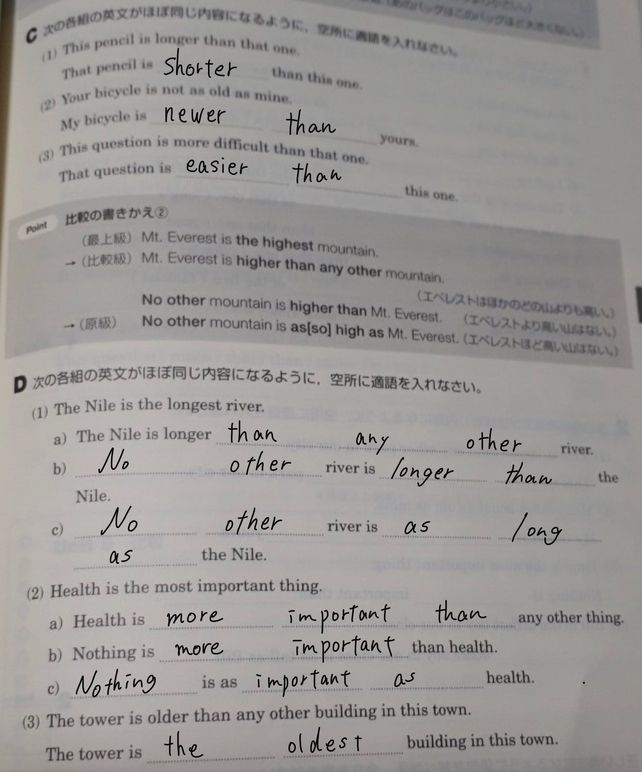 C 次の各組の英文がほぼ同じ内容になるように，空所に適語を入れなさい。
(1) This pencil is longer than that one.
That pencil is shorter than this one.
(2) Your bicycle is not as old as mine.
My bicycle is newer than yours.
(3) This question is more difficult than that one.
That question is easier than this one.
Point 比較の書きかえ②
（最上級）Mt. Everest is the highest mountain.
→（比較級）Mt. Everest is higher than any other mountain.
（エベレストはほかのどの山よりも高い。）
No other mountain is higher than Mt. Everest. （エベレストより高い山はない。）
→（原級） No other mountain is as[so] high as Mt. Everest.（エベレストほど高い山はない。）
D 次の各組の英文がほぼ同じ内容になるように，空所に適語を入れなさい。
(1) The Nile is the longest river.
a) The Nile is longer than any other river.
b) No other river is longer than the
Nile.
c) No other river is as long
as the Nile.
(2) Health is the most important thing.
a) Health is more important than any other thing.
b) Nothing is more important than health.
c) Nothing is as important as health.
(3) The tower is older than any other building in this town.
The tower is the oldest building in this town.